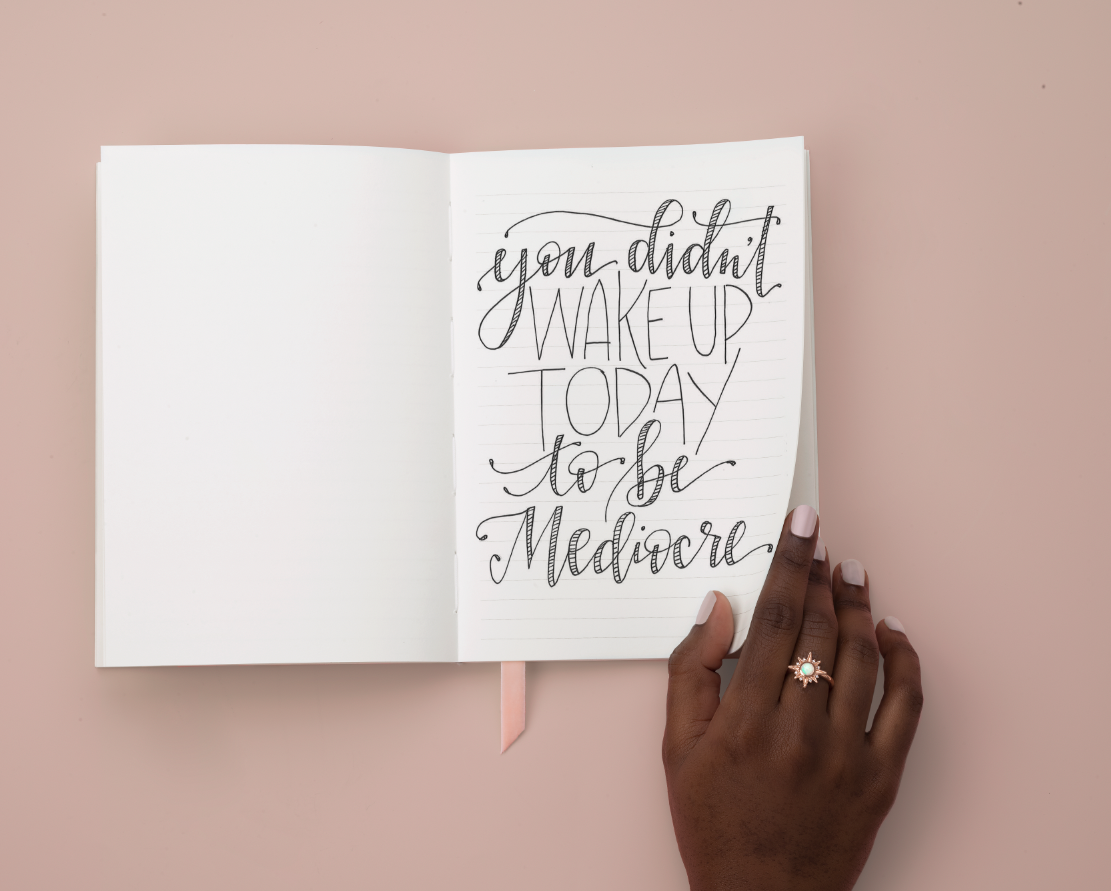 you didn't
WAKE UP
TODAY
to be
Mediocre